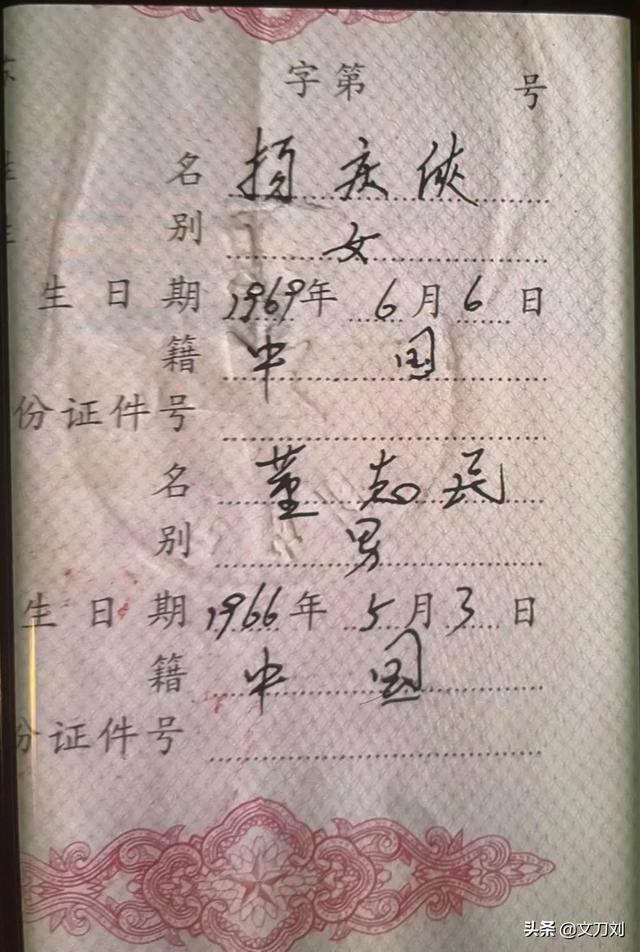 字第 号
名 庆侠
别 女
生日期 1969年 6月6日
籍 中国
份证件号
名 董志民
别 男
生日期 1966年 5月3日
籍 中国
份证件号
头条 @文刀刘